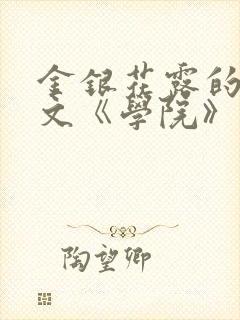 金銀花露的
文《學院》
陶望卿